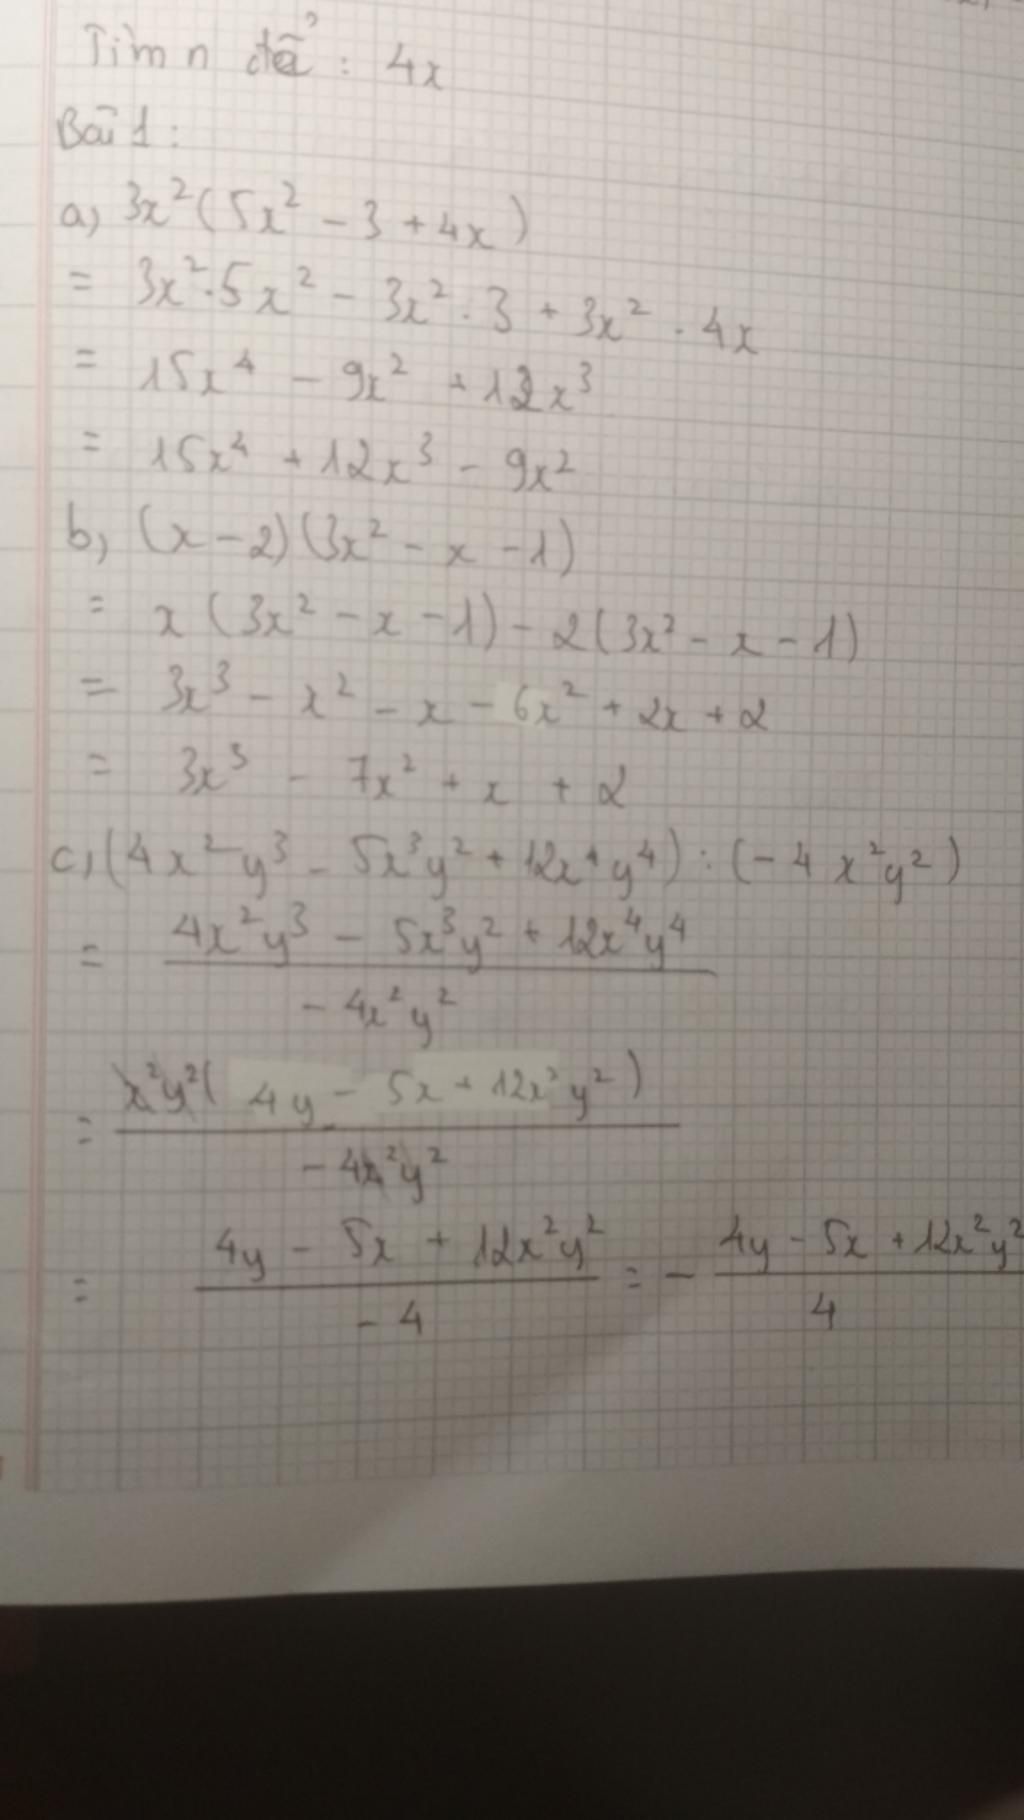 Tìm n để : 4x
Bài 1 :
a, 3x²(5x² - 3 + 4x)
= 3x².5x² - 3x².3 + 3x².4x
= 15x⁴ - 9x² + 12x³
= 15x⁴ + 12x³ - 9x²
b, (x-2)(3x² - x - 1)
= x(3x² - x - 1) - 2(3x² - x - 1)
= 3x³ - x² - x - 6x² + 2x + 2
= 3x³ - 7x² + x + 2
c, (4x²y³ - 5x³y² + 12x⁴y⁴) : (-4x²y²)
= 4x²y³ - 5x³y² + 12x⁴y⁴
- 4x²y²
= x²y²(4y - 5x + 12x²y²)
- 4x²y²
= 4y - 5x + 12x²y² = - 4y - 5x + 12x²y²
- 4 4